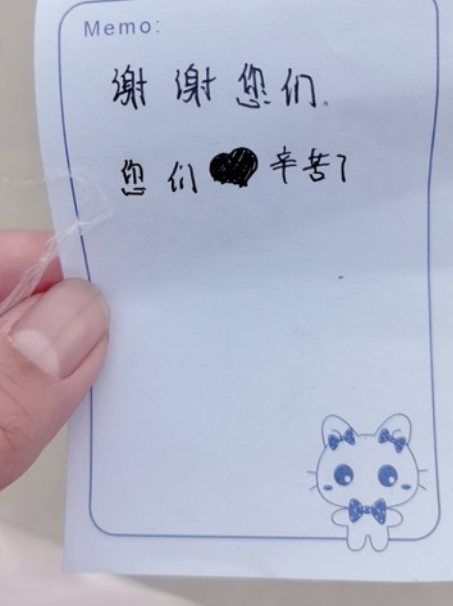 Memo:
谢谢您们.
您们辛苦了